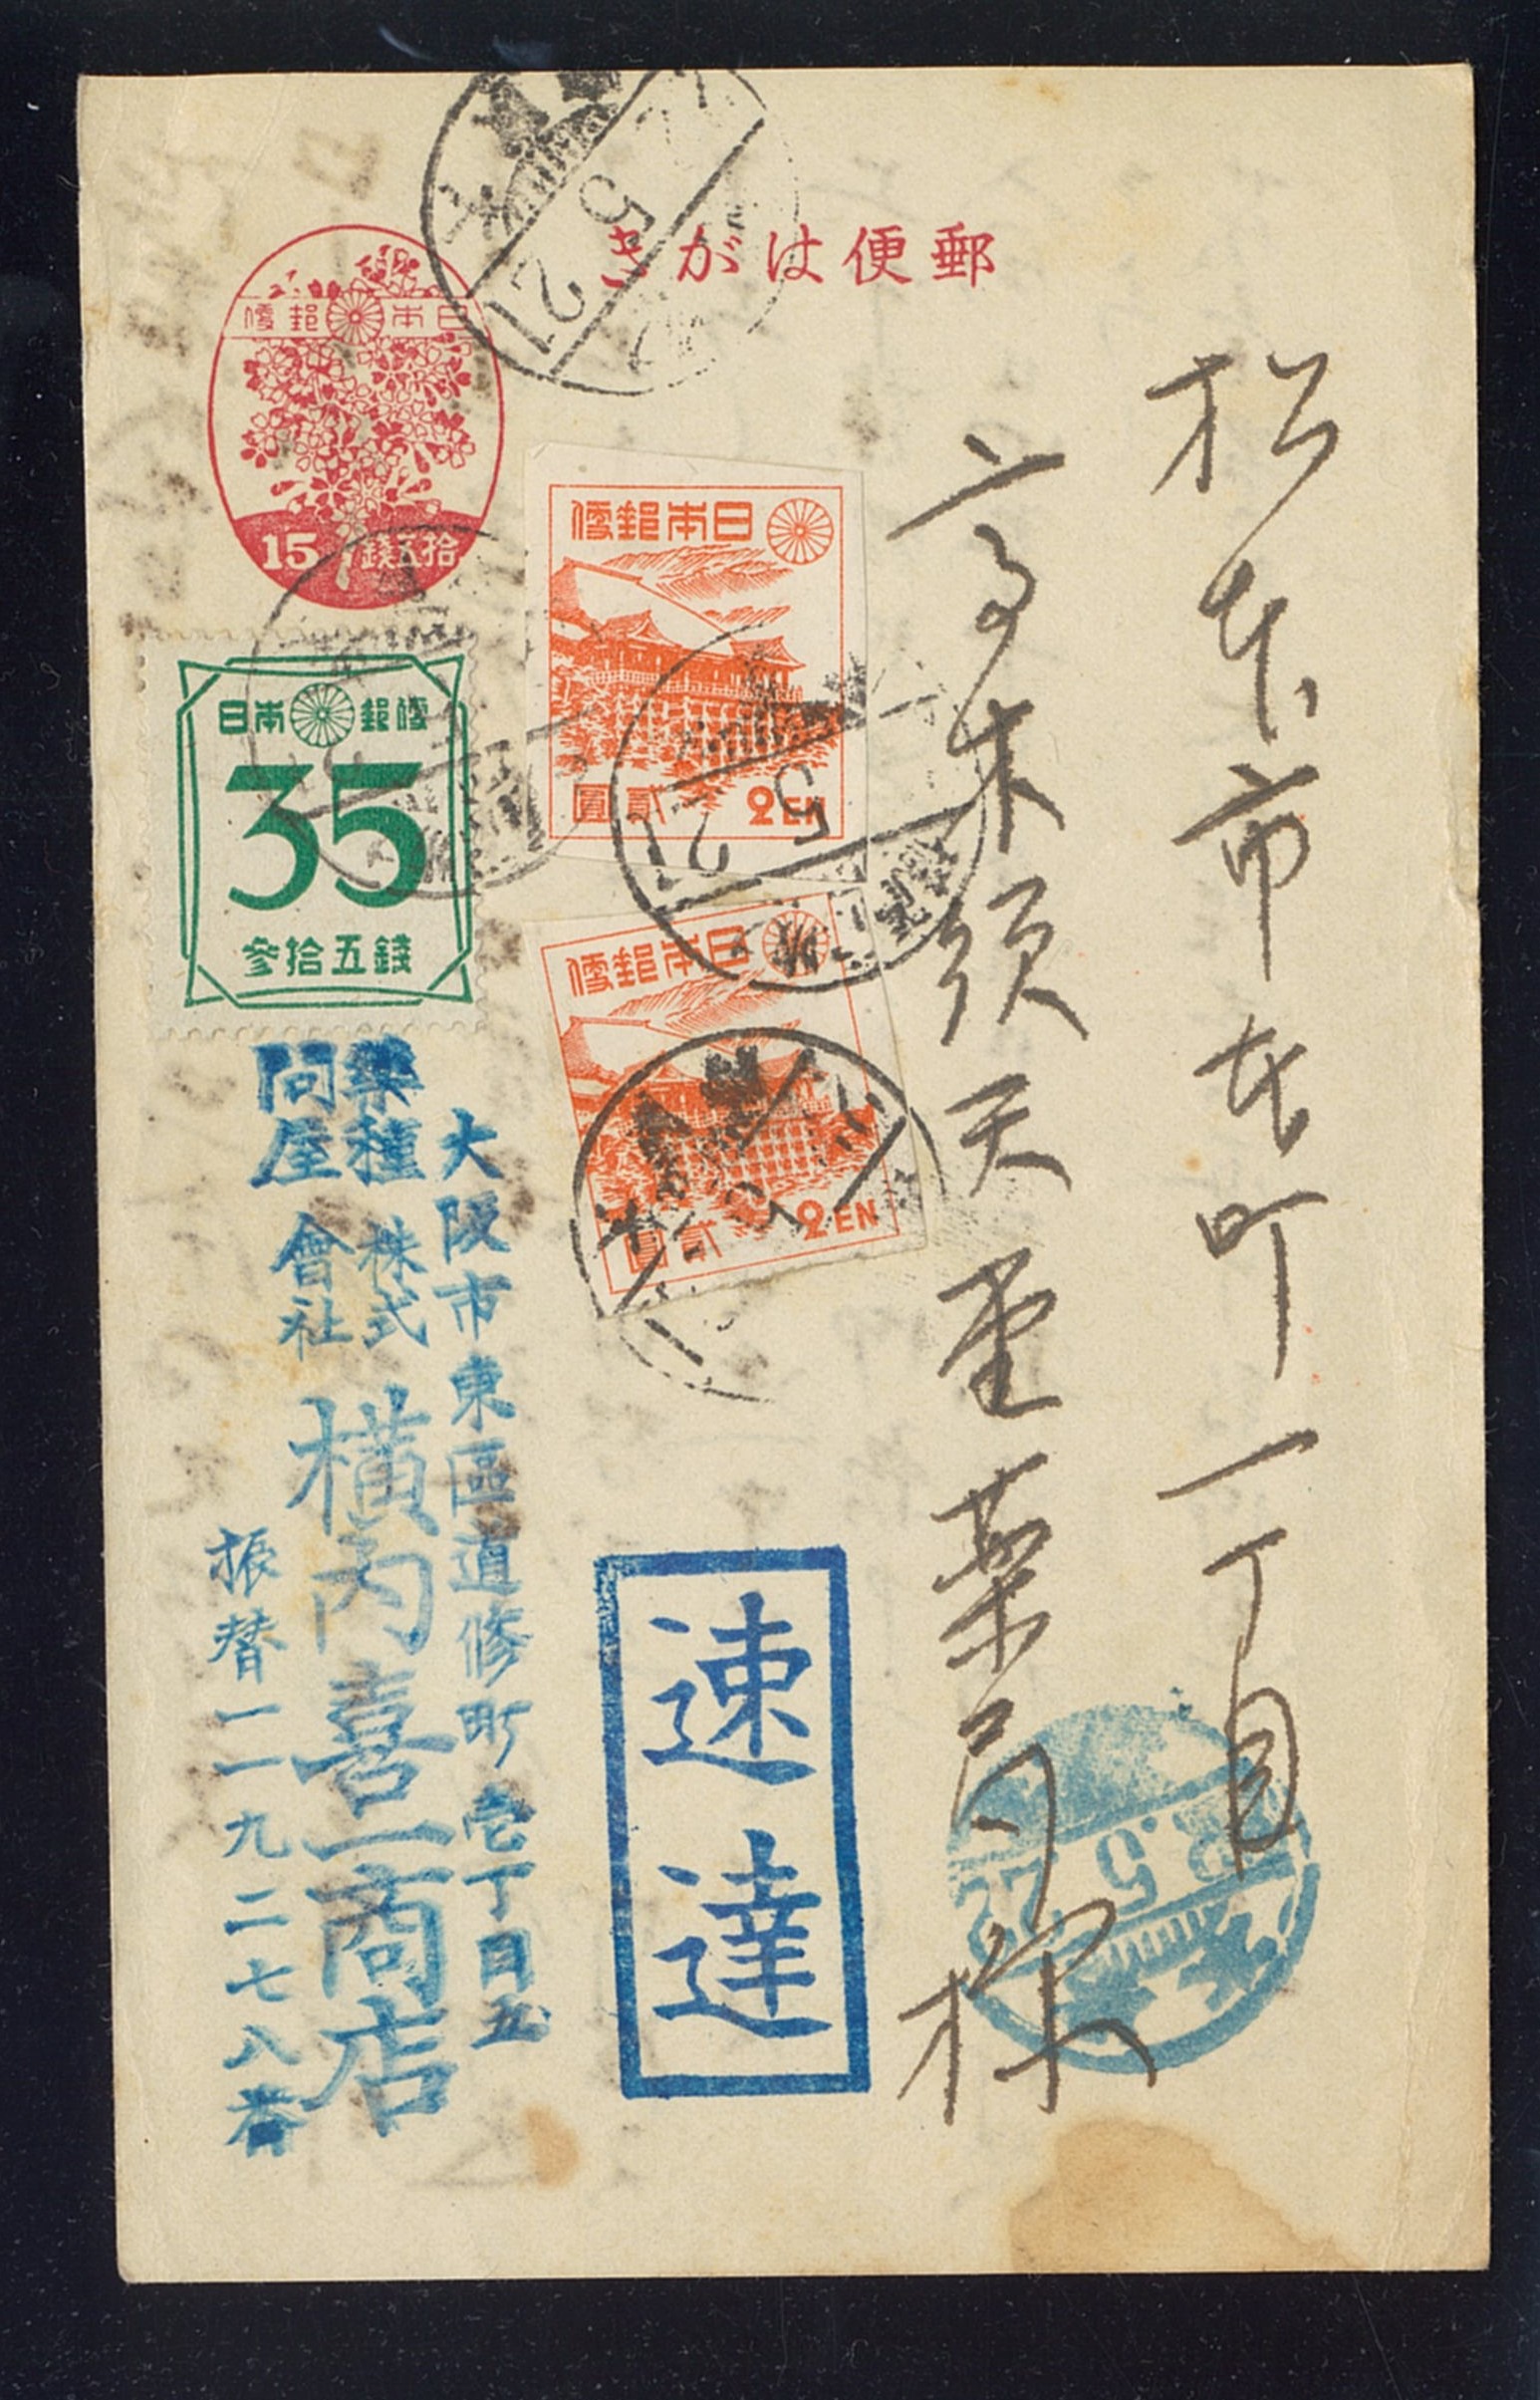 郵便はがき
日本郵便
15 拾五錢
日本郵便
35
参拾五錢
日本郵便
貳圓 2EN
日本郵便
貳圓 2EN
5 21
5
21
松本市本町一丁目
高木須天堂薬局様
速達
大阪市東區道修町壱丁目五
薬種問屋
株式會社
横内喜一商店
振替一一九二七八番
5
22